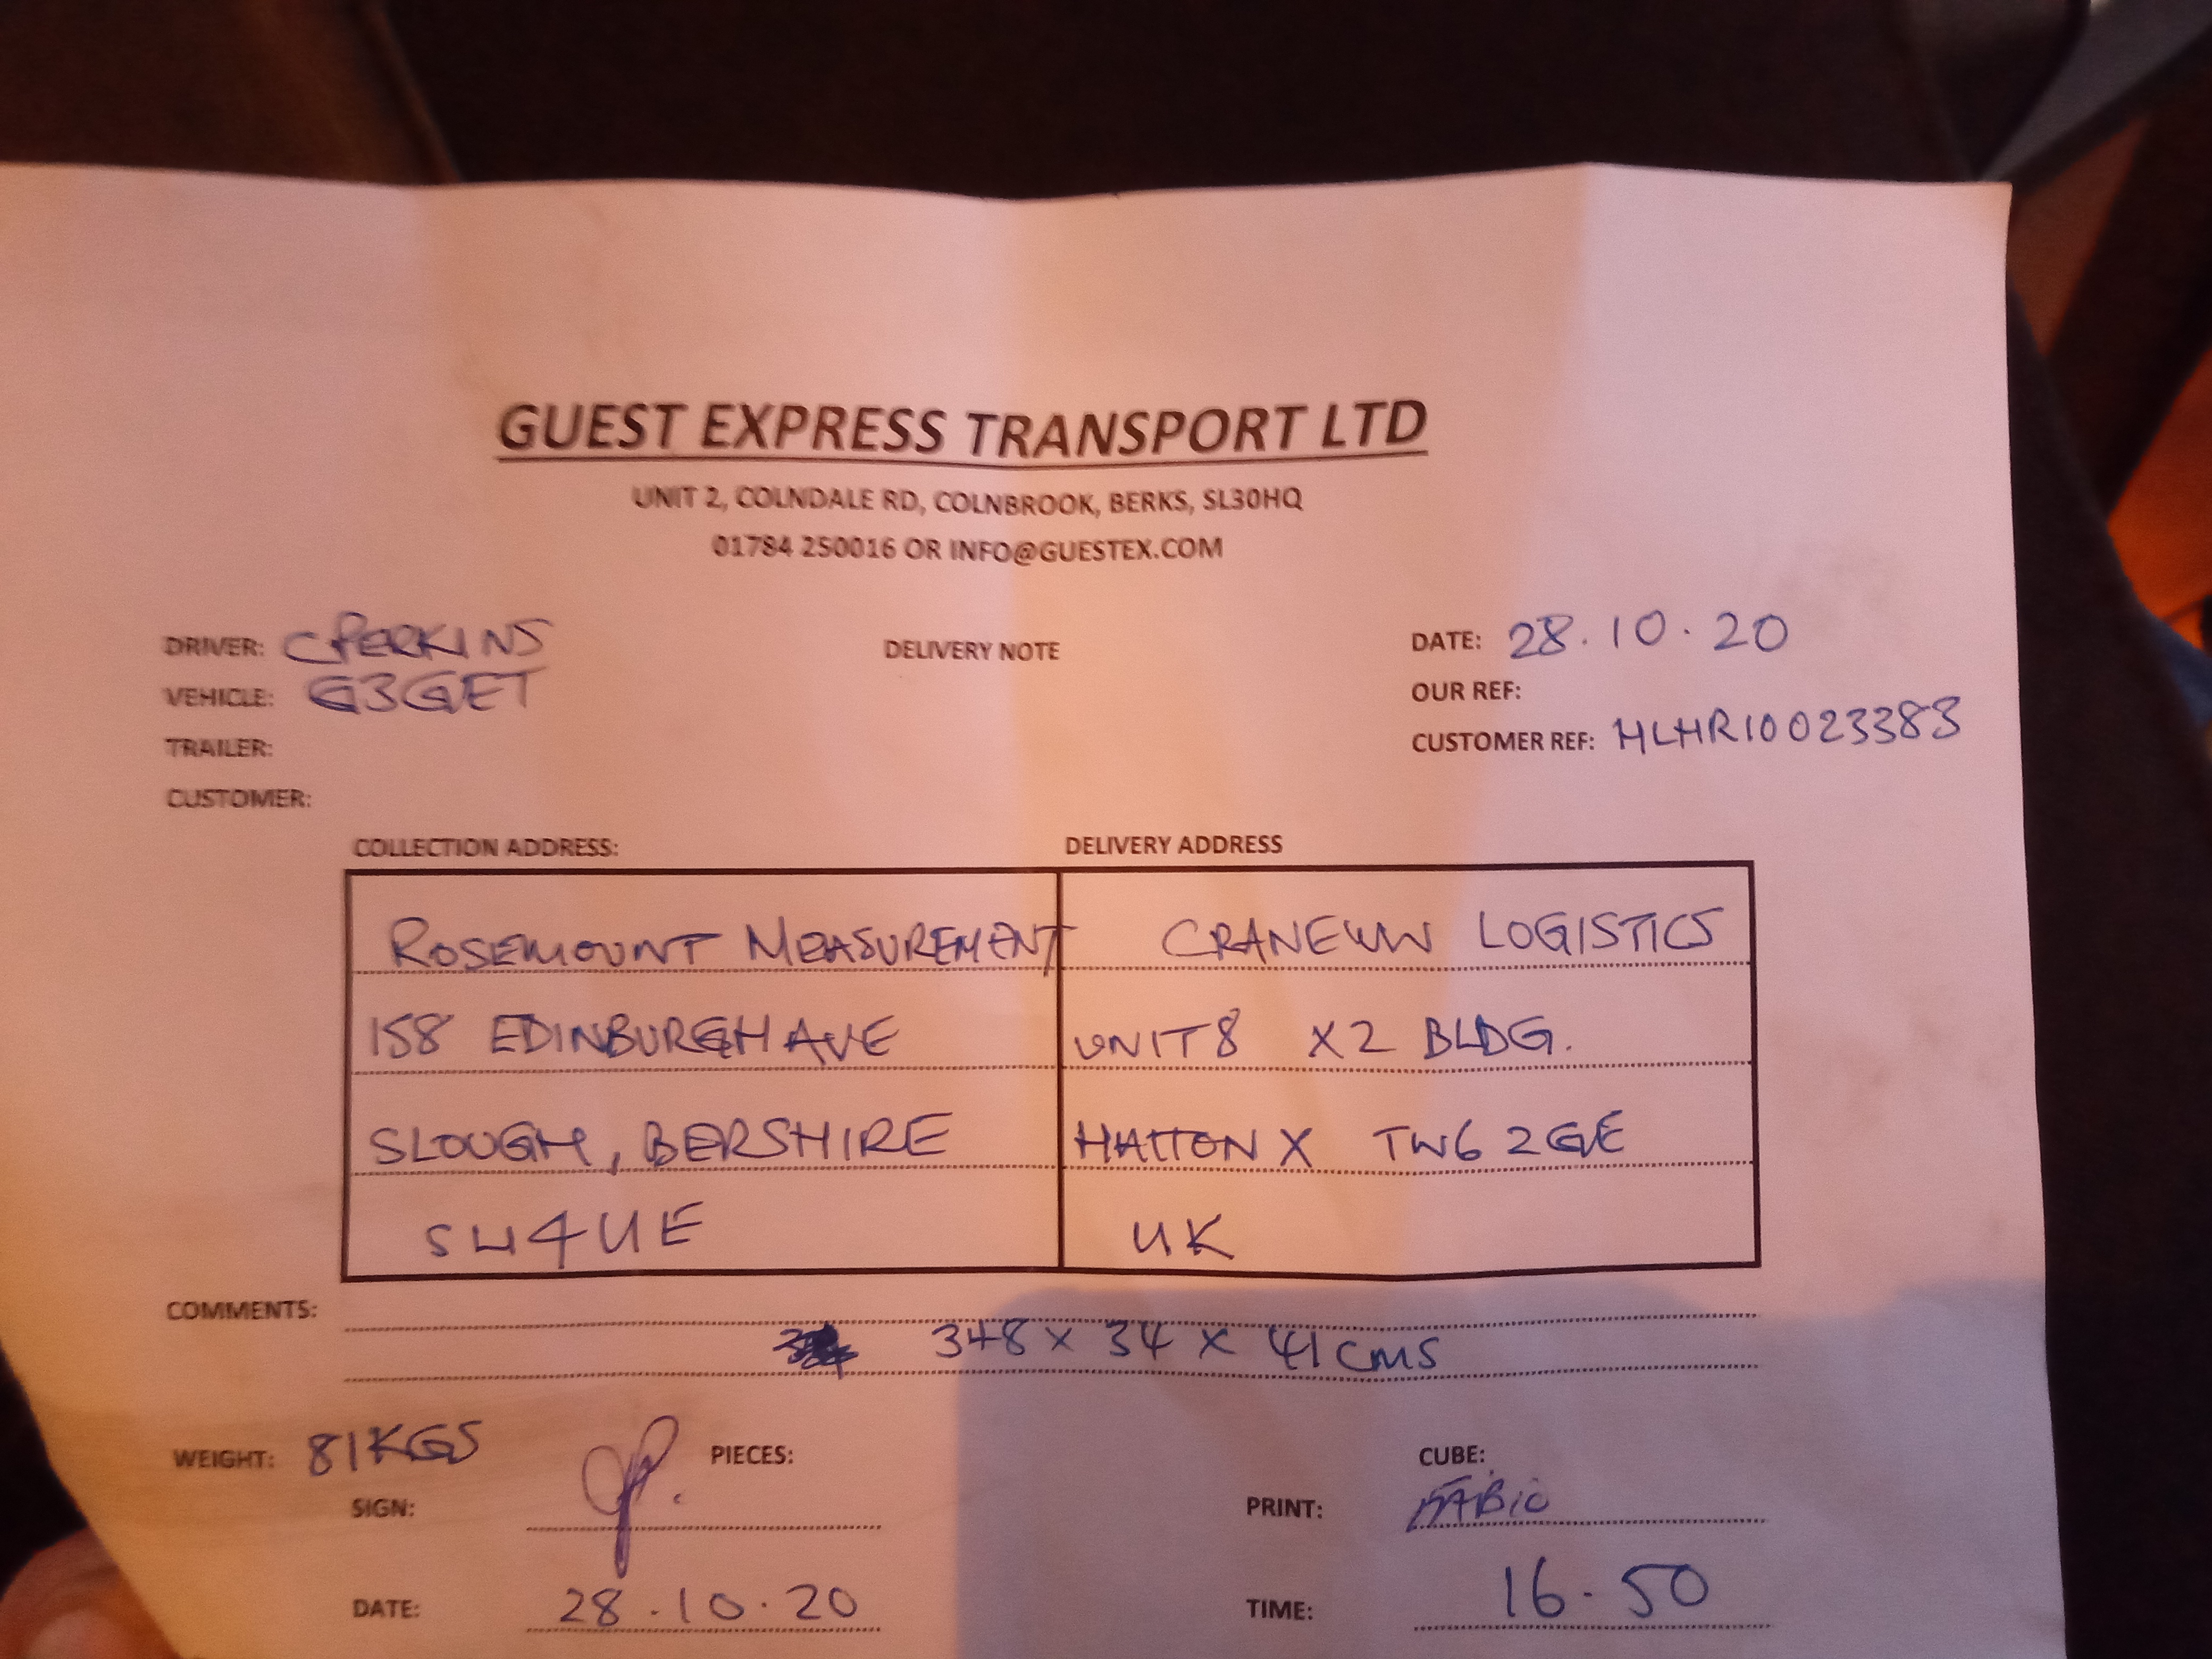 GUEST EXPRESS TRANSPORT LTD
UNIT 2, COLNDALE RD, COLNBROOK, BERKS, SL30HQ
01784 250016 OR INFO@GUESTEX.COM
DRIVER: C PERKINS
DELIVERY NOTE
DATE: 28.10.20
VEHICLE: G3GET
OUR REF:
TRAILER:
CUSTOMER REF: HLHR10023383
CUSTOMER:
COLLECTION ADDRESS:
DELIVERY ADDRESS
ROSEMOUNT MEASUREMENT
CRANEWW LOGISTICS
158 EDINBURGH AVE
UNIT 8 X2 BLDG.
SLOUGH, BERSHIRE
HATTON X TW6 2GE
SL14UE
UK
COMMENTS:
348 x 34 x 41 CMS
WEIGHT: 81KGS
PIECES:
CUBE:
SIGN:
PRINT: FABIO
DATE: 28.10.20
TIME: 16.50